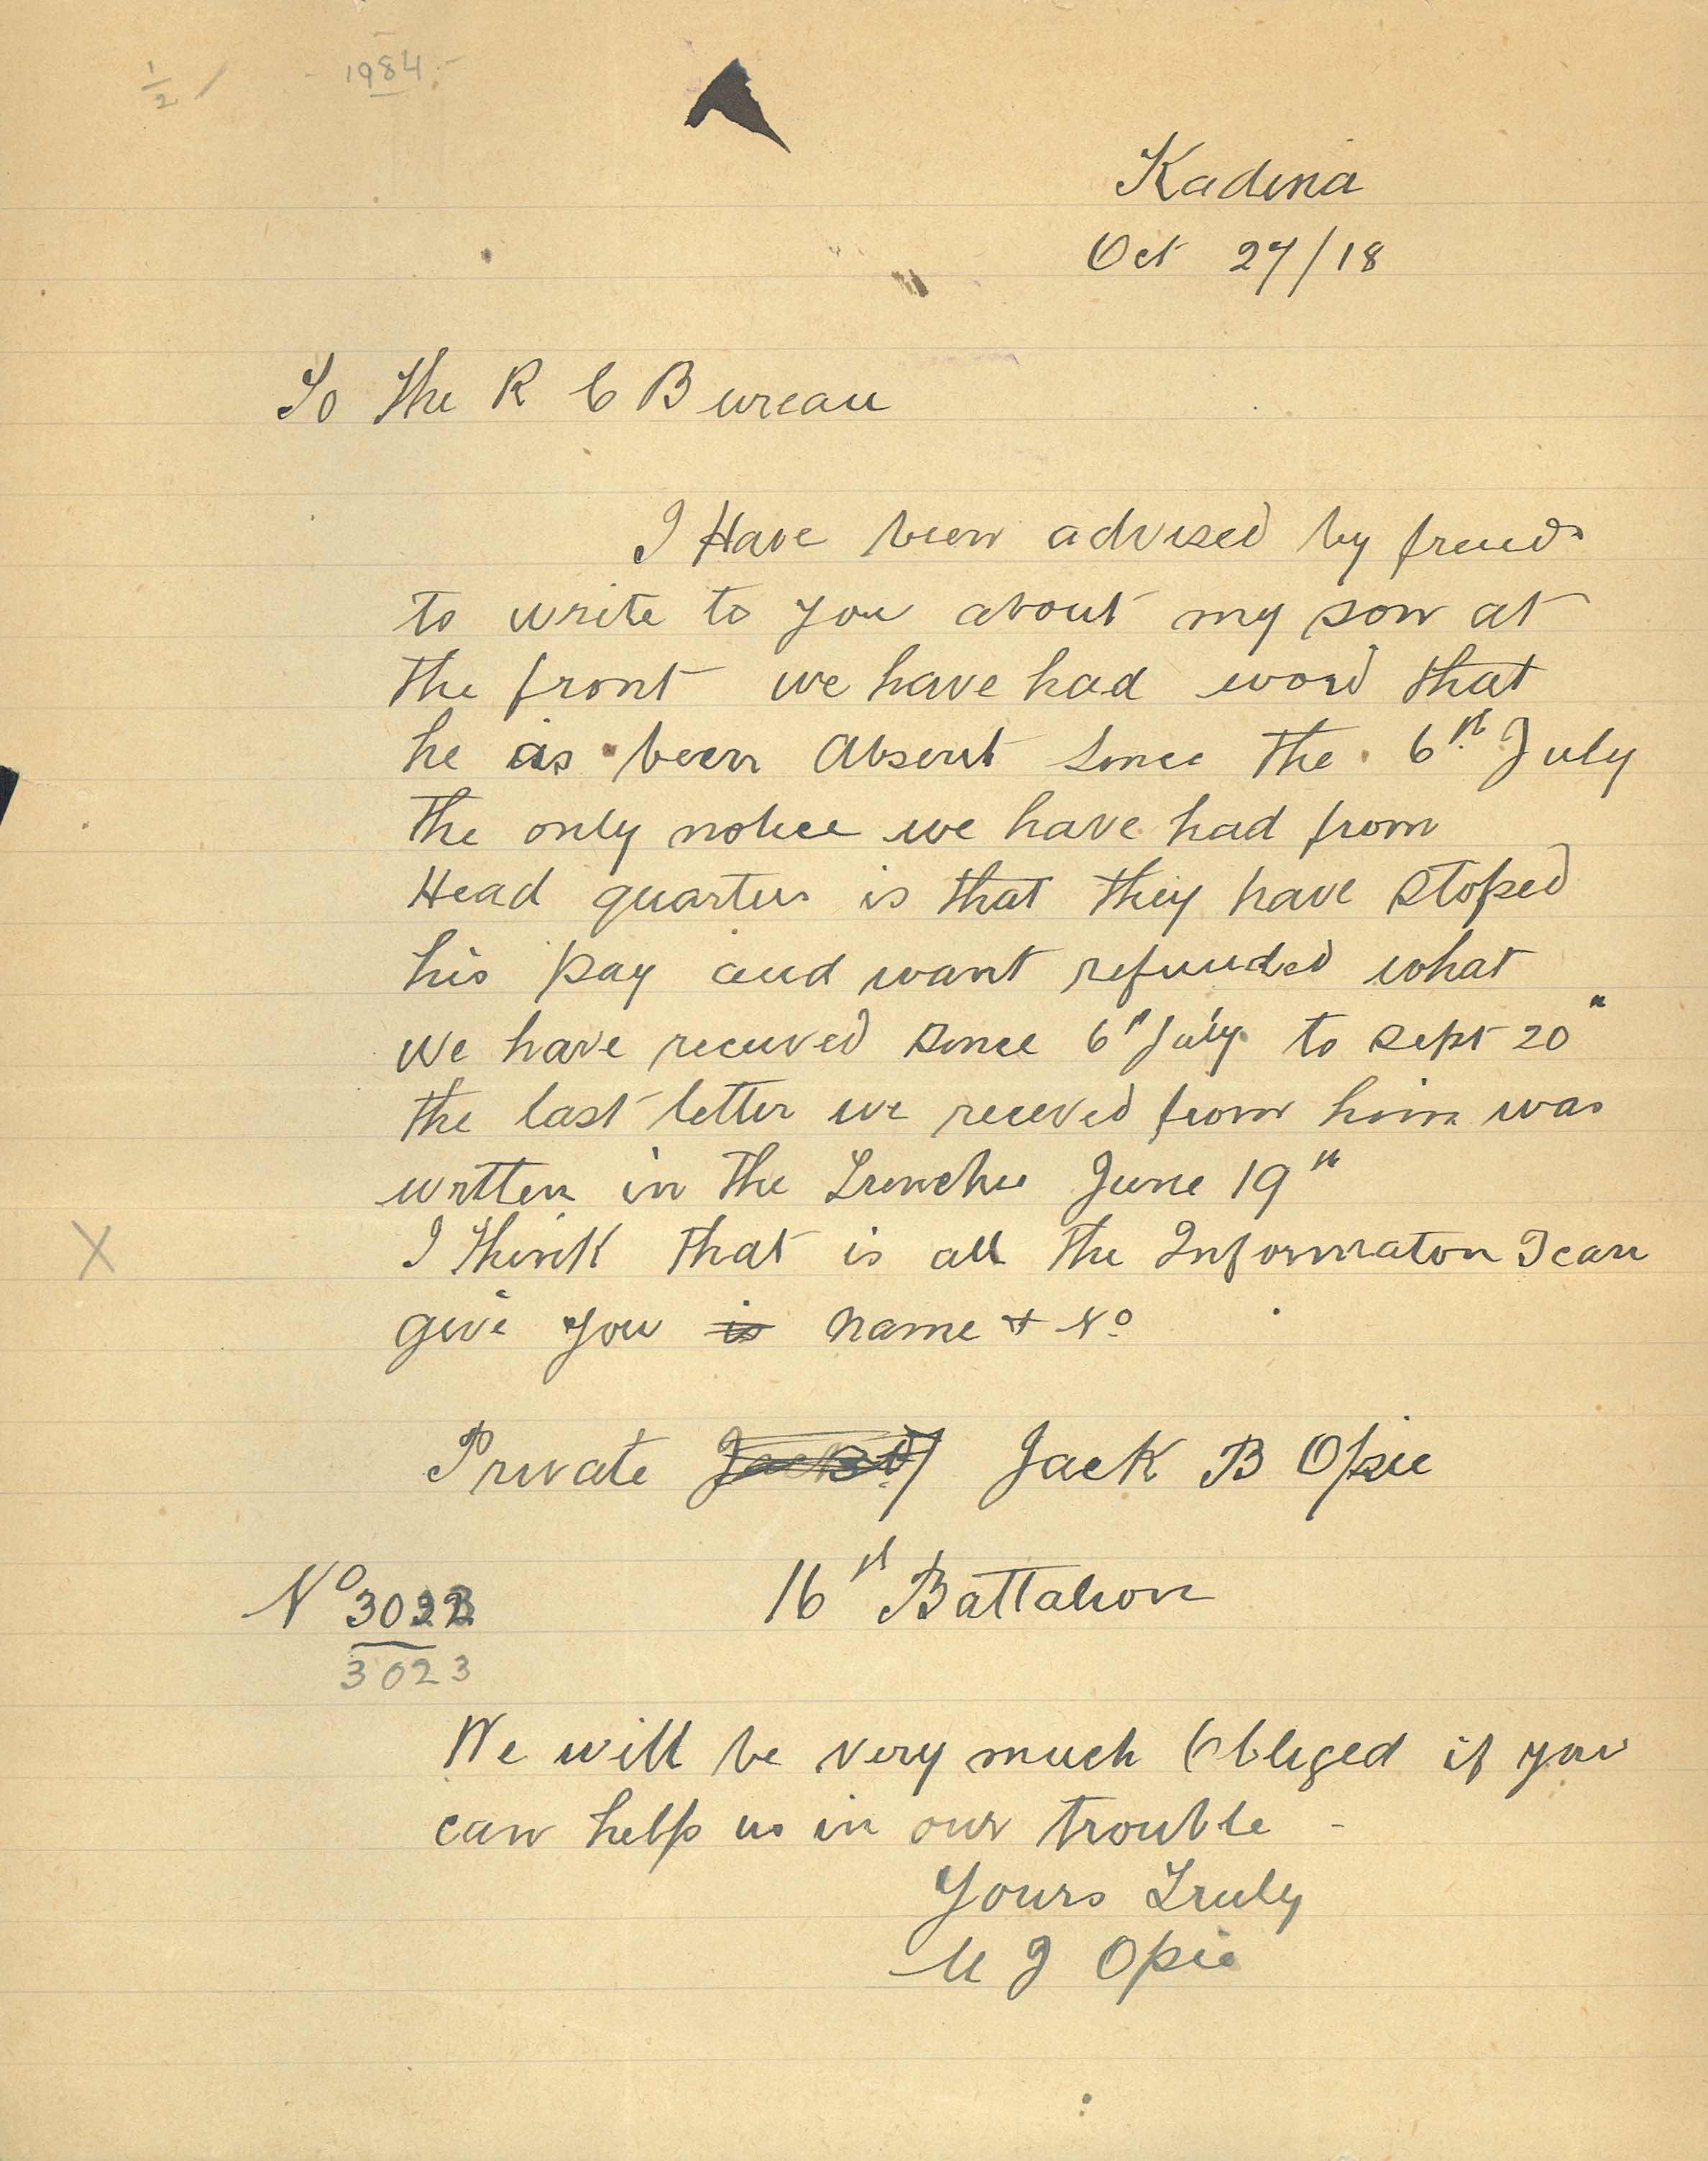 1/2 / - 1984 -
Kadina
Oct 27/18
To the R C Bureau
I Have been advised by freinds
to write to you about my son at
the front we have had word that
he as been Absent since the 6th July
the only notice we have had from
Head quarters is that they have stoped
his pay and want refunded what
we have received since 6th July to Sept 20"
the last letter we receved from him was
wrtten in the Trenches June 19th
I think that is all the Informaton I can
give you is name & No
Private Jack B Opie
No 3022 16th Battalion
3023
We will be very much Obliged if you
can help us in our trouble -
Yours Truly
M J Opie
X